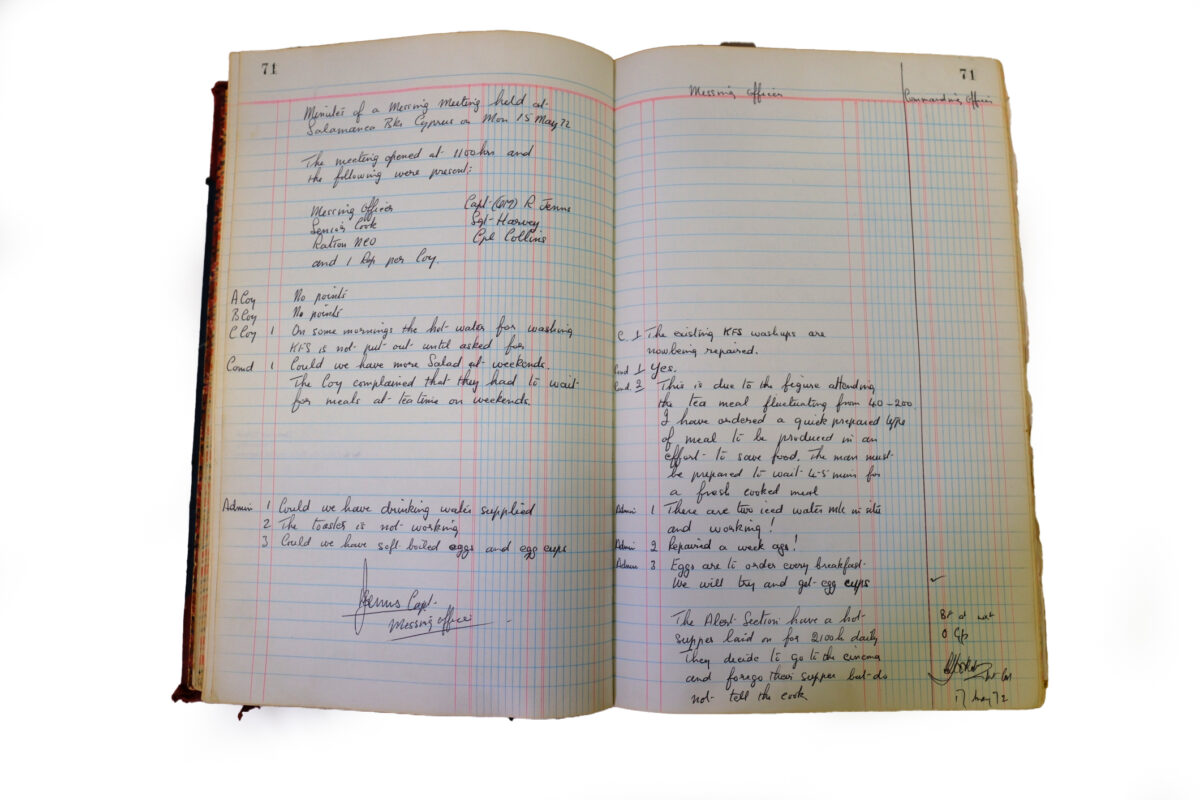 71
Minutes of a Messing Meeting held at
Salamanca Bks Cyprus on Mon 15 May 72
The meeting opened at 1100hrs and
the following were present:
Messing Officer Capt (QM) R Jenns
Senior Cook Sgt Harvey
Ration NCO Cpl Collins
and 1 Rep per Coy.
A Coy No points
B Coy No points
C Coy 1 On some mornings the hot water for washing
KFS is not put out until asked for
Comd 1 Could we have more Salad at weekends.
The Coy complained that they had to wait
for meals at teatime on weekends.
Admin 1 Could we have drinking water supplied
2 The toaster is not working
3 Could we have soft boiled eggs and egg cups
Jenns Capt
Messing Officer
71
Messing Officer Commanding Officer
C. 1 The existing KFS washups are
now being repaired.
Comd 1 Yes.
Comd. 2 This is due to the figure attending
the tea meal fluctuating from 40-200
I have ordered a quick prepared type
of meal to be produced in an
effort to save food. The man must
be prepared to wait 4-5 mins for
a fresh cooked meal
Admin 1 There are two iced water m/c in situ
and working!
Admin 2 Repaired a week ago!
Admin 3 Eggs are to order every breakfast.
We will try and get egg cups ✓
The Alert Section have a hot
supper laid on for 2100h daily
They decide to go to the cinema
and forego their supper but do
not tell the cook.
17 May 72